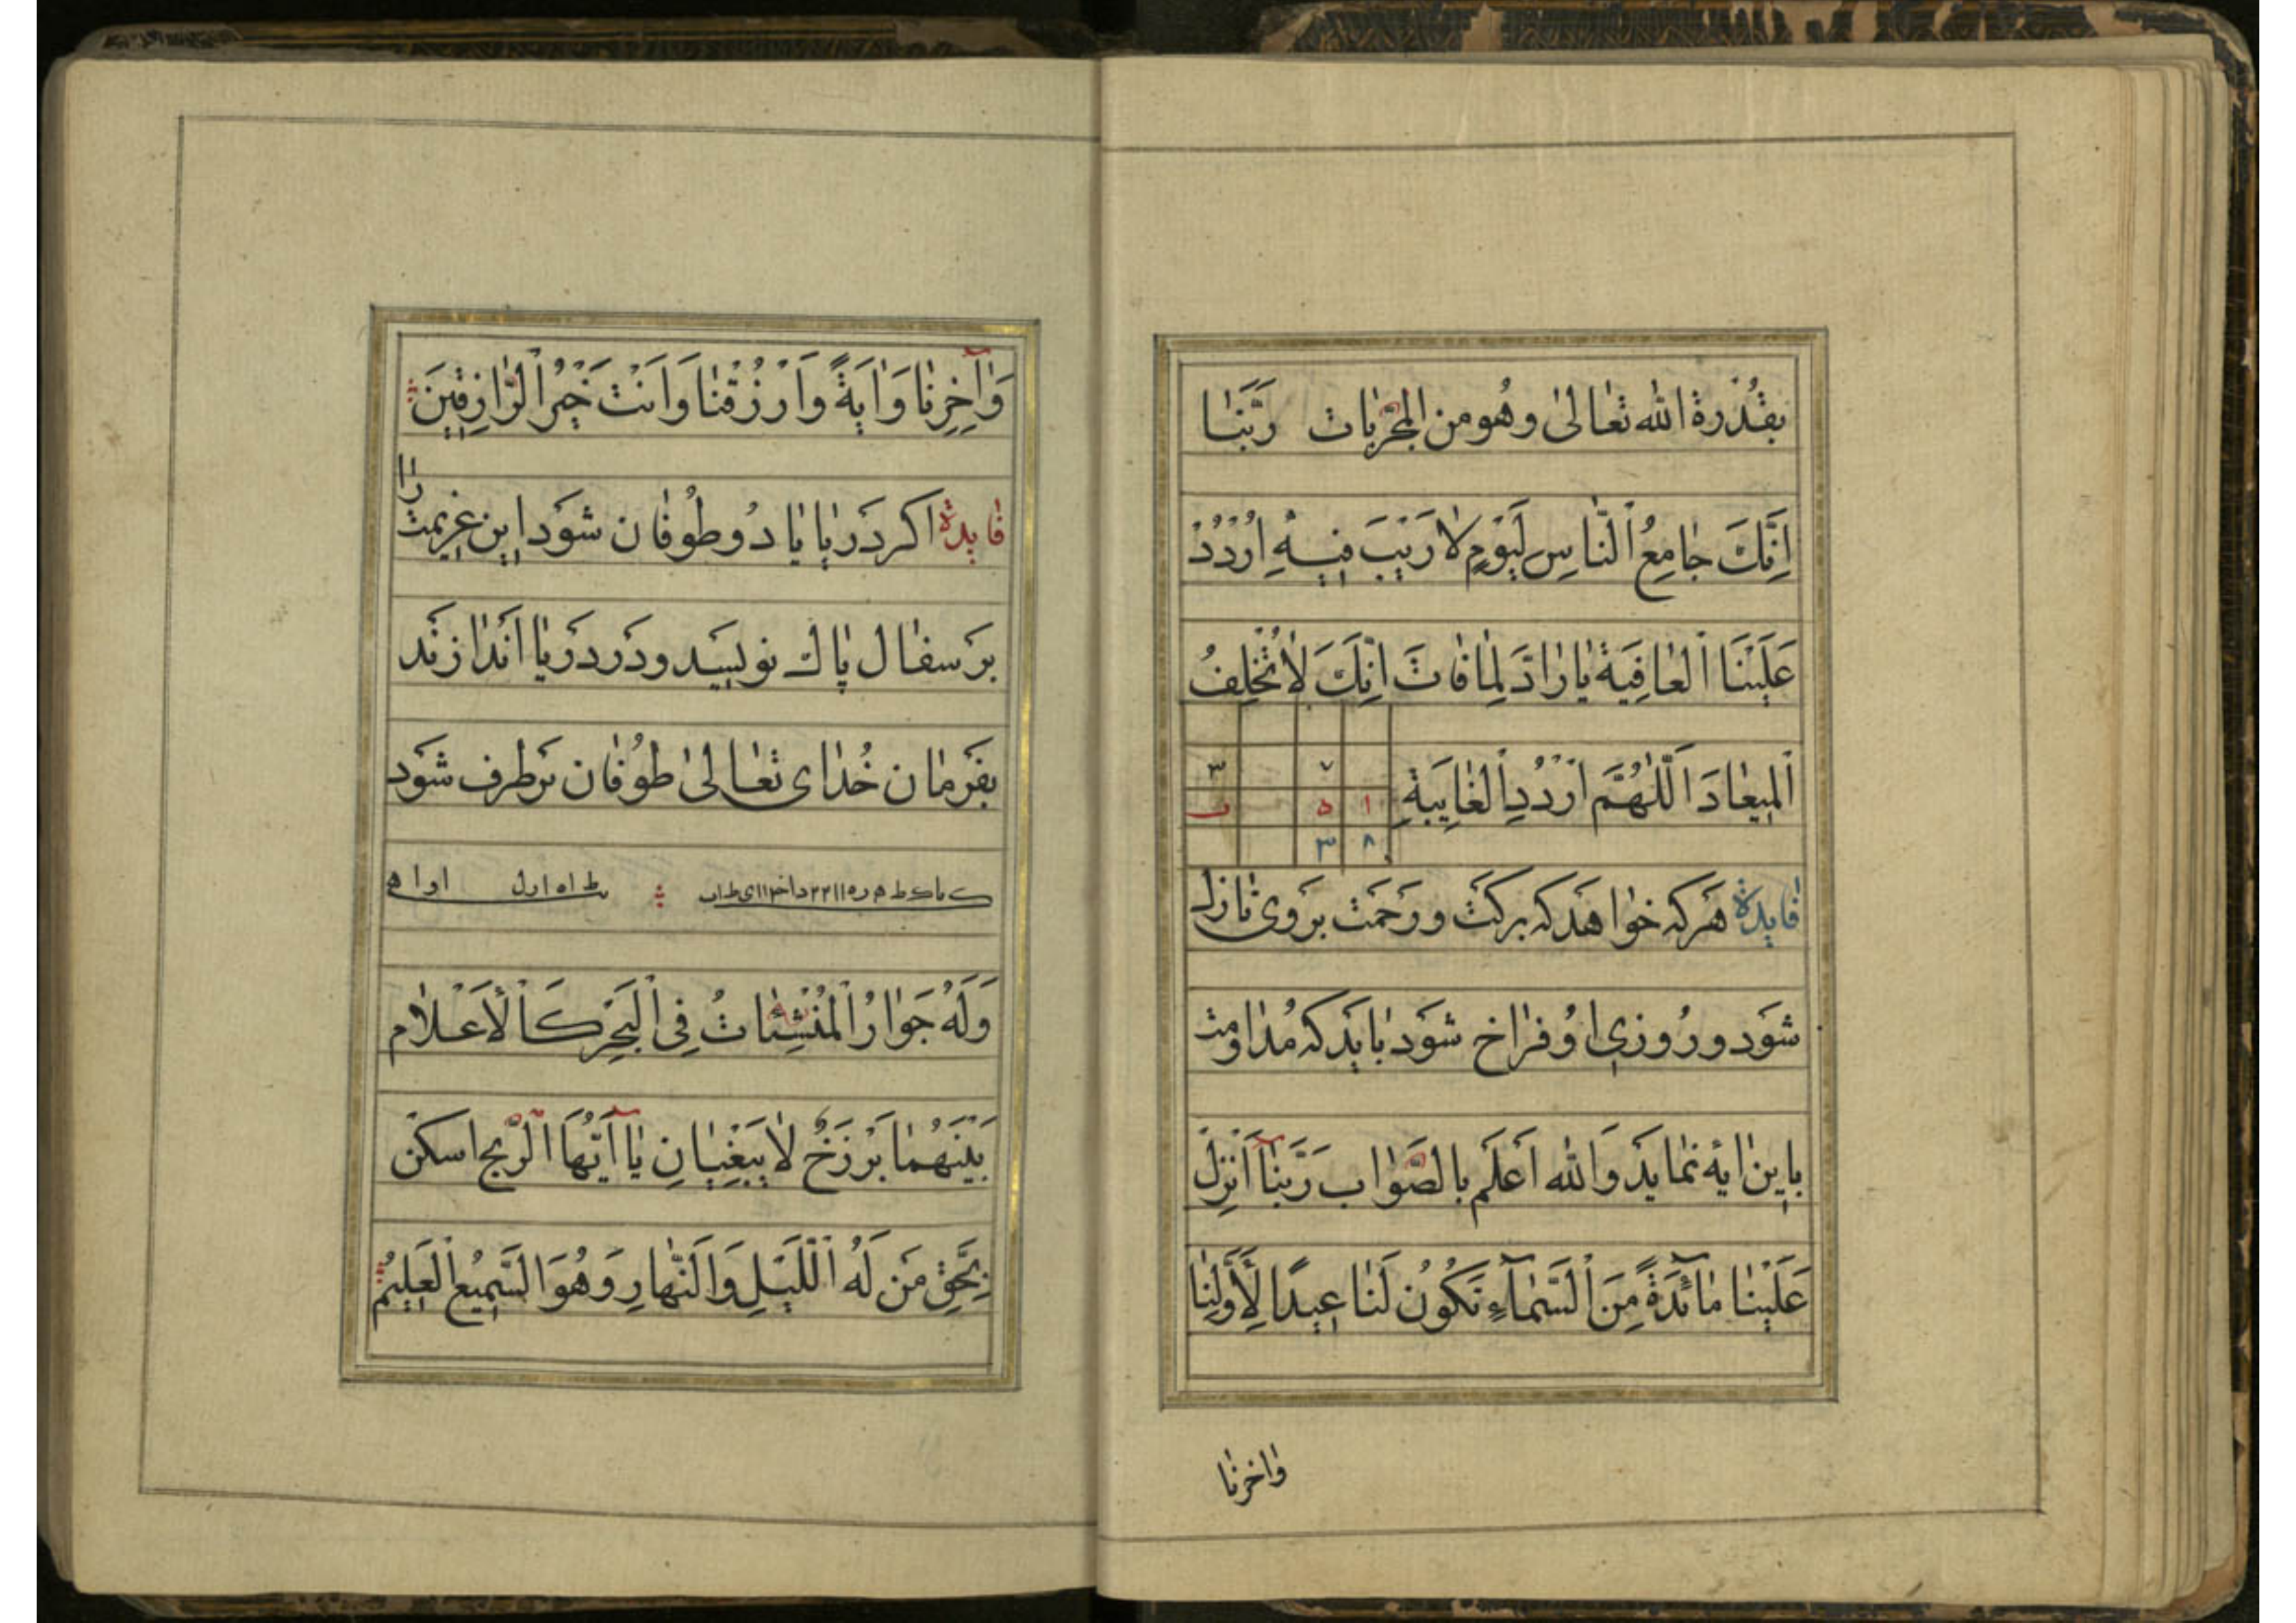 بقُدْرة الله تعالىٰ وهُو من المجرّبات رَبَّنٰا
اِنَّكَ جٰامِعُ النّٰاسِ لِيَوْمٍ لاٰ رَيْبَ فيٖهِ اُرْدُدْ
عَلَيْنَا الْعٰافِيَةَ يٰا رٰادَّ لِمٰا فٰاتَ اِنَّكَ لاٰ تُخْلِفُ
الْميٖعٰادَ اَللّٰهُمَّ ارْدُدِ الْغٰايِبَةِ
٣ ٧
ب ٥ ١
٣ ٨
فٰايدۀ هَركه خوٰاهَد كه بركَت و رَحمَت بروَى نٰازل
شوَد و رُوزىِ اوُ فرٰاخ شوَد بٰايَد كه مُدٰاومت
بٰاين اٰيهٔ نمٰايَد وَ الله اَعلَم بالصّوٰاب رَبَّنٰا اَنْزِلْ
عَلَيْنٰا مٰآئدَةً مِنَ السَّمٰآءِ تَكُونُ لَنٰا عيٖدًا لِأَوَّلِنٰا
وٰاخرنٰا
وَاٰخِرِنٰا وَاٰيَةً وَارْزُقْنٰا وَاَنْتَ خَيْرُ الرّٰازِقيٖنَ
فٰايدۀ اكر دَريٰا يٰا دُو طُوفٰان شوَد اين عزيمت رٰا
برَ سفٰال پٰاك نويسيَد و دَر دَريٰا اَندٰازنَد
بفَرمٰان خُدٰاى تعٰالىٰ طوُفٰان برَطرف شوَد
وَلَهُ جَوٰارُ الْمُنْشِئٰاتُ فِى الْبَحْرِ كَالْأَعْلٰام
بَيْنَهُمٰا بَرْزَخٌ لاٰ يَبْغِيٰانِ يٰا اَيُّهَا الرّيح اسكن
بِحَقِّ مَن لَهُ اللَّيْلِ وَالنَّهٰارِ وَهُوَ السَّميٖعُ الْعَليٖمُ